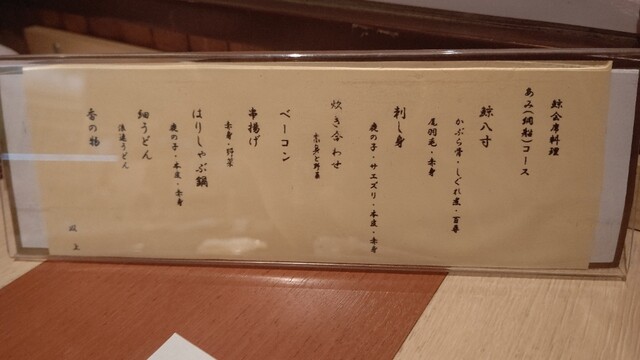 鯨会席料理
あみ(網船)コース
鯨八寸
かぶら骨・しぐれ煮・百尋
尾羽毛・赤身
刺し身
鹿の子・サエズリ・本皮・赤身
炊き合わせ
ベーコン
串揚げ
赤身・野菜
はりしゃぶ鍋
鹿の子・本皮・赤身
細うどん
香の物
以上